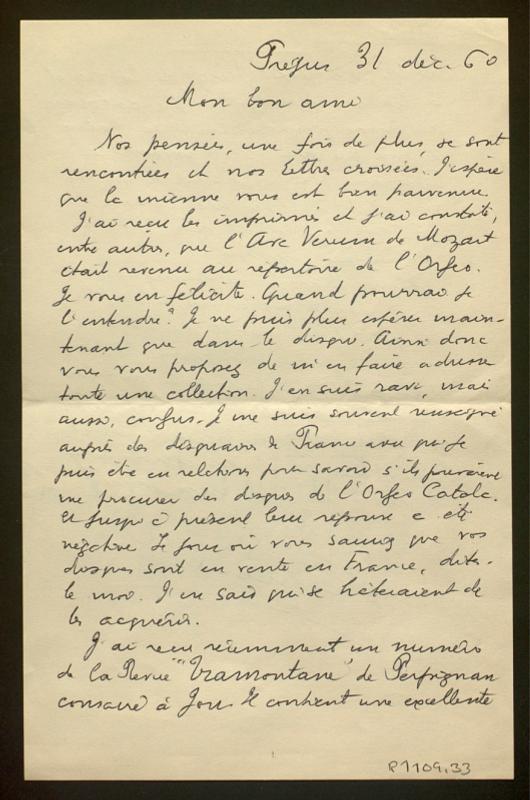 Fréjus 31 déc. 60
Mon bon ami
Nos pensées, une fois de plus, se sont
rencontrées et nos lettres croisées. J'espère
que la mienne vous est bien parvenue.
J'ai reçu les imprimés et j'ai constaté,
entre autres, que l'Ave Verum de Mozart
était revenu au répertoire de l'Orfeo.
Je vous en félicite. Quand pourrai je
l'entendre? Je ne puis plus espérer main-
tenant que dans le disque. Ainsi donc
vous vous proposez de m'en faire adresser
toute une collection. J'en suis ravi, mais
aussi, confus. Je me suis souvent renseigné
auprès des disquaires de France avec qui je
puis être en relations pour savoir s'ils pouvaient
me procurer des disques de l'Orfeo Català.
Et jusqu'à présent leur réponse a été
négative. Le jour où vous saurez que vos
disques sont en vente en France, dites-
le moi. J'en sais qui se hâteraient de
les acquérir.
J'ai reçu récemment un numéro
de la Revue "Tramontane" de Perpignan
consacré à Jou. Il contient une excellente
P1109,33